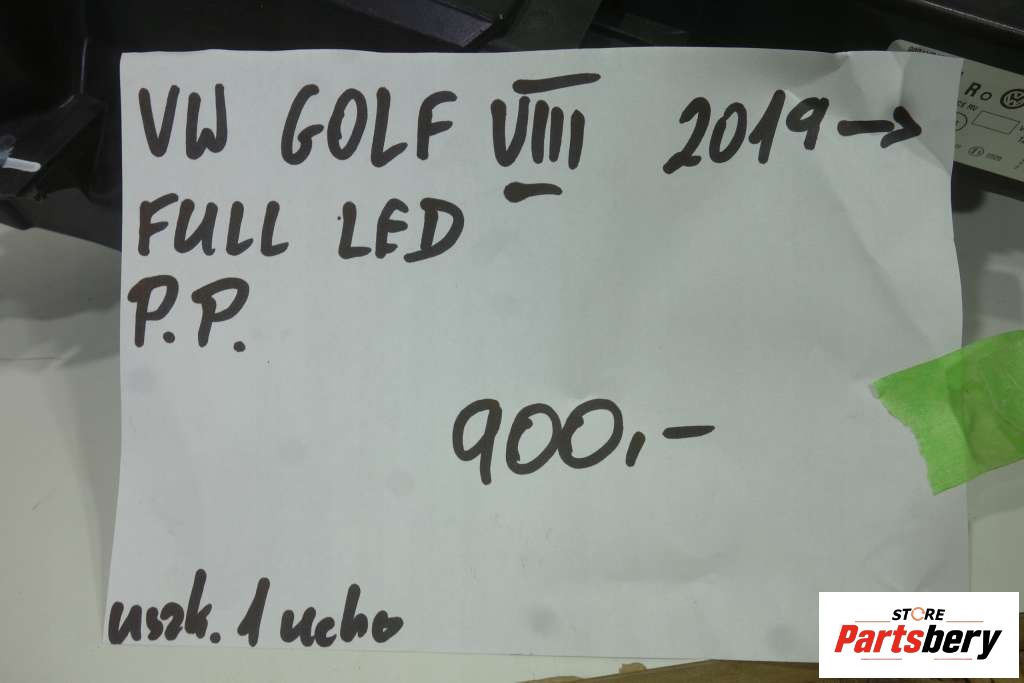 VW GOLF VIII 2019→
FULL LED
P.P.
900,-
uszk. 1 ucho
Ro
STORE
Partsbery